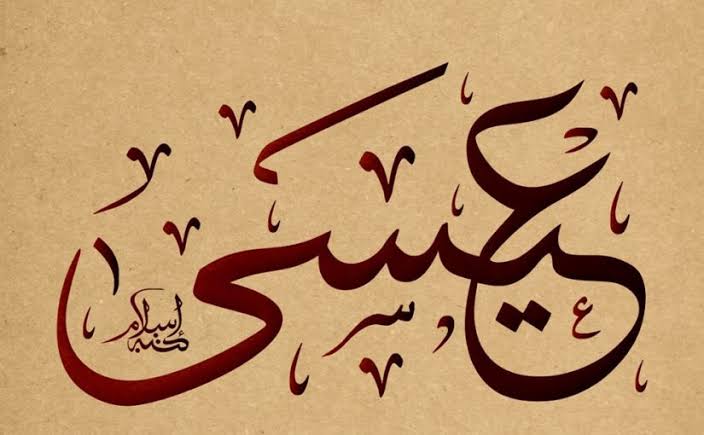 عيسى
كتبه إسلام